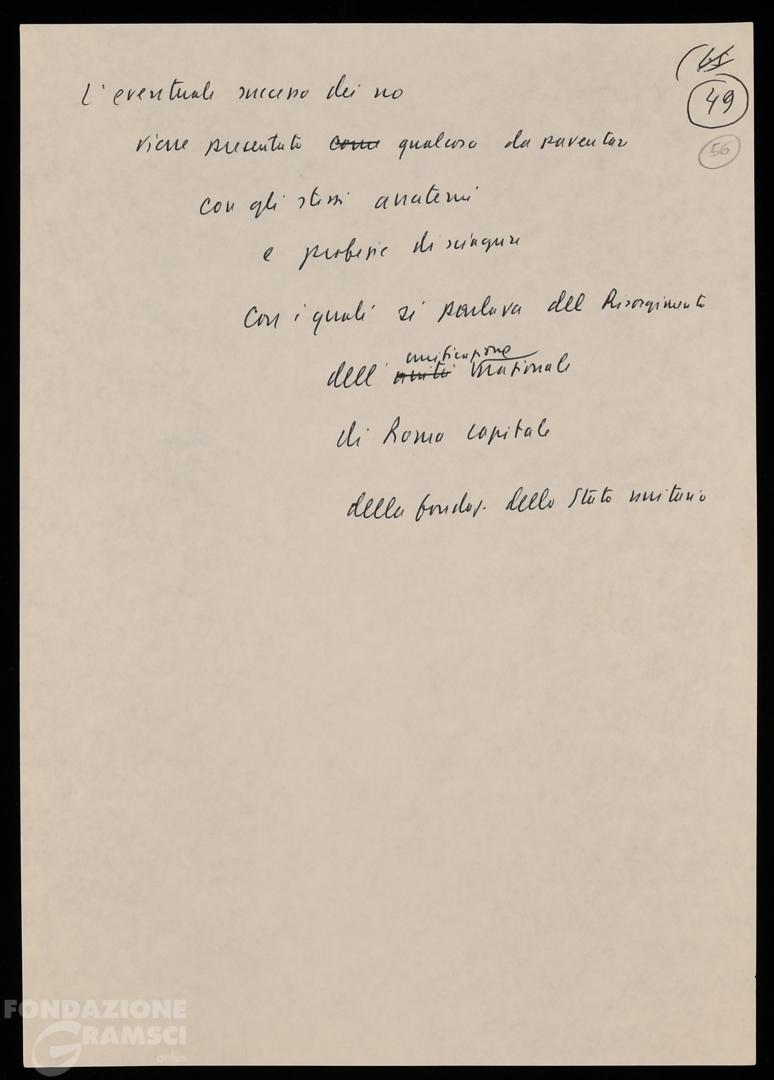 49
56
L'eventuale successo dei no
viene presentato come qualcosa da paventare
con gli stessi anatemi
e profezie di sciagure
con i quali si parlava del Risorgimento
unificazione
dell' unità nazionale
di Roma capitale
della fondaz. dello Stato unitario
FONDAZIONE
GRAMSCI
onlus